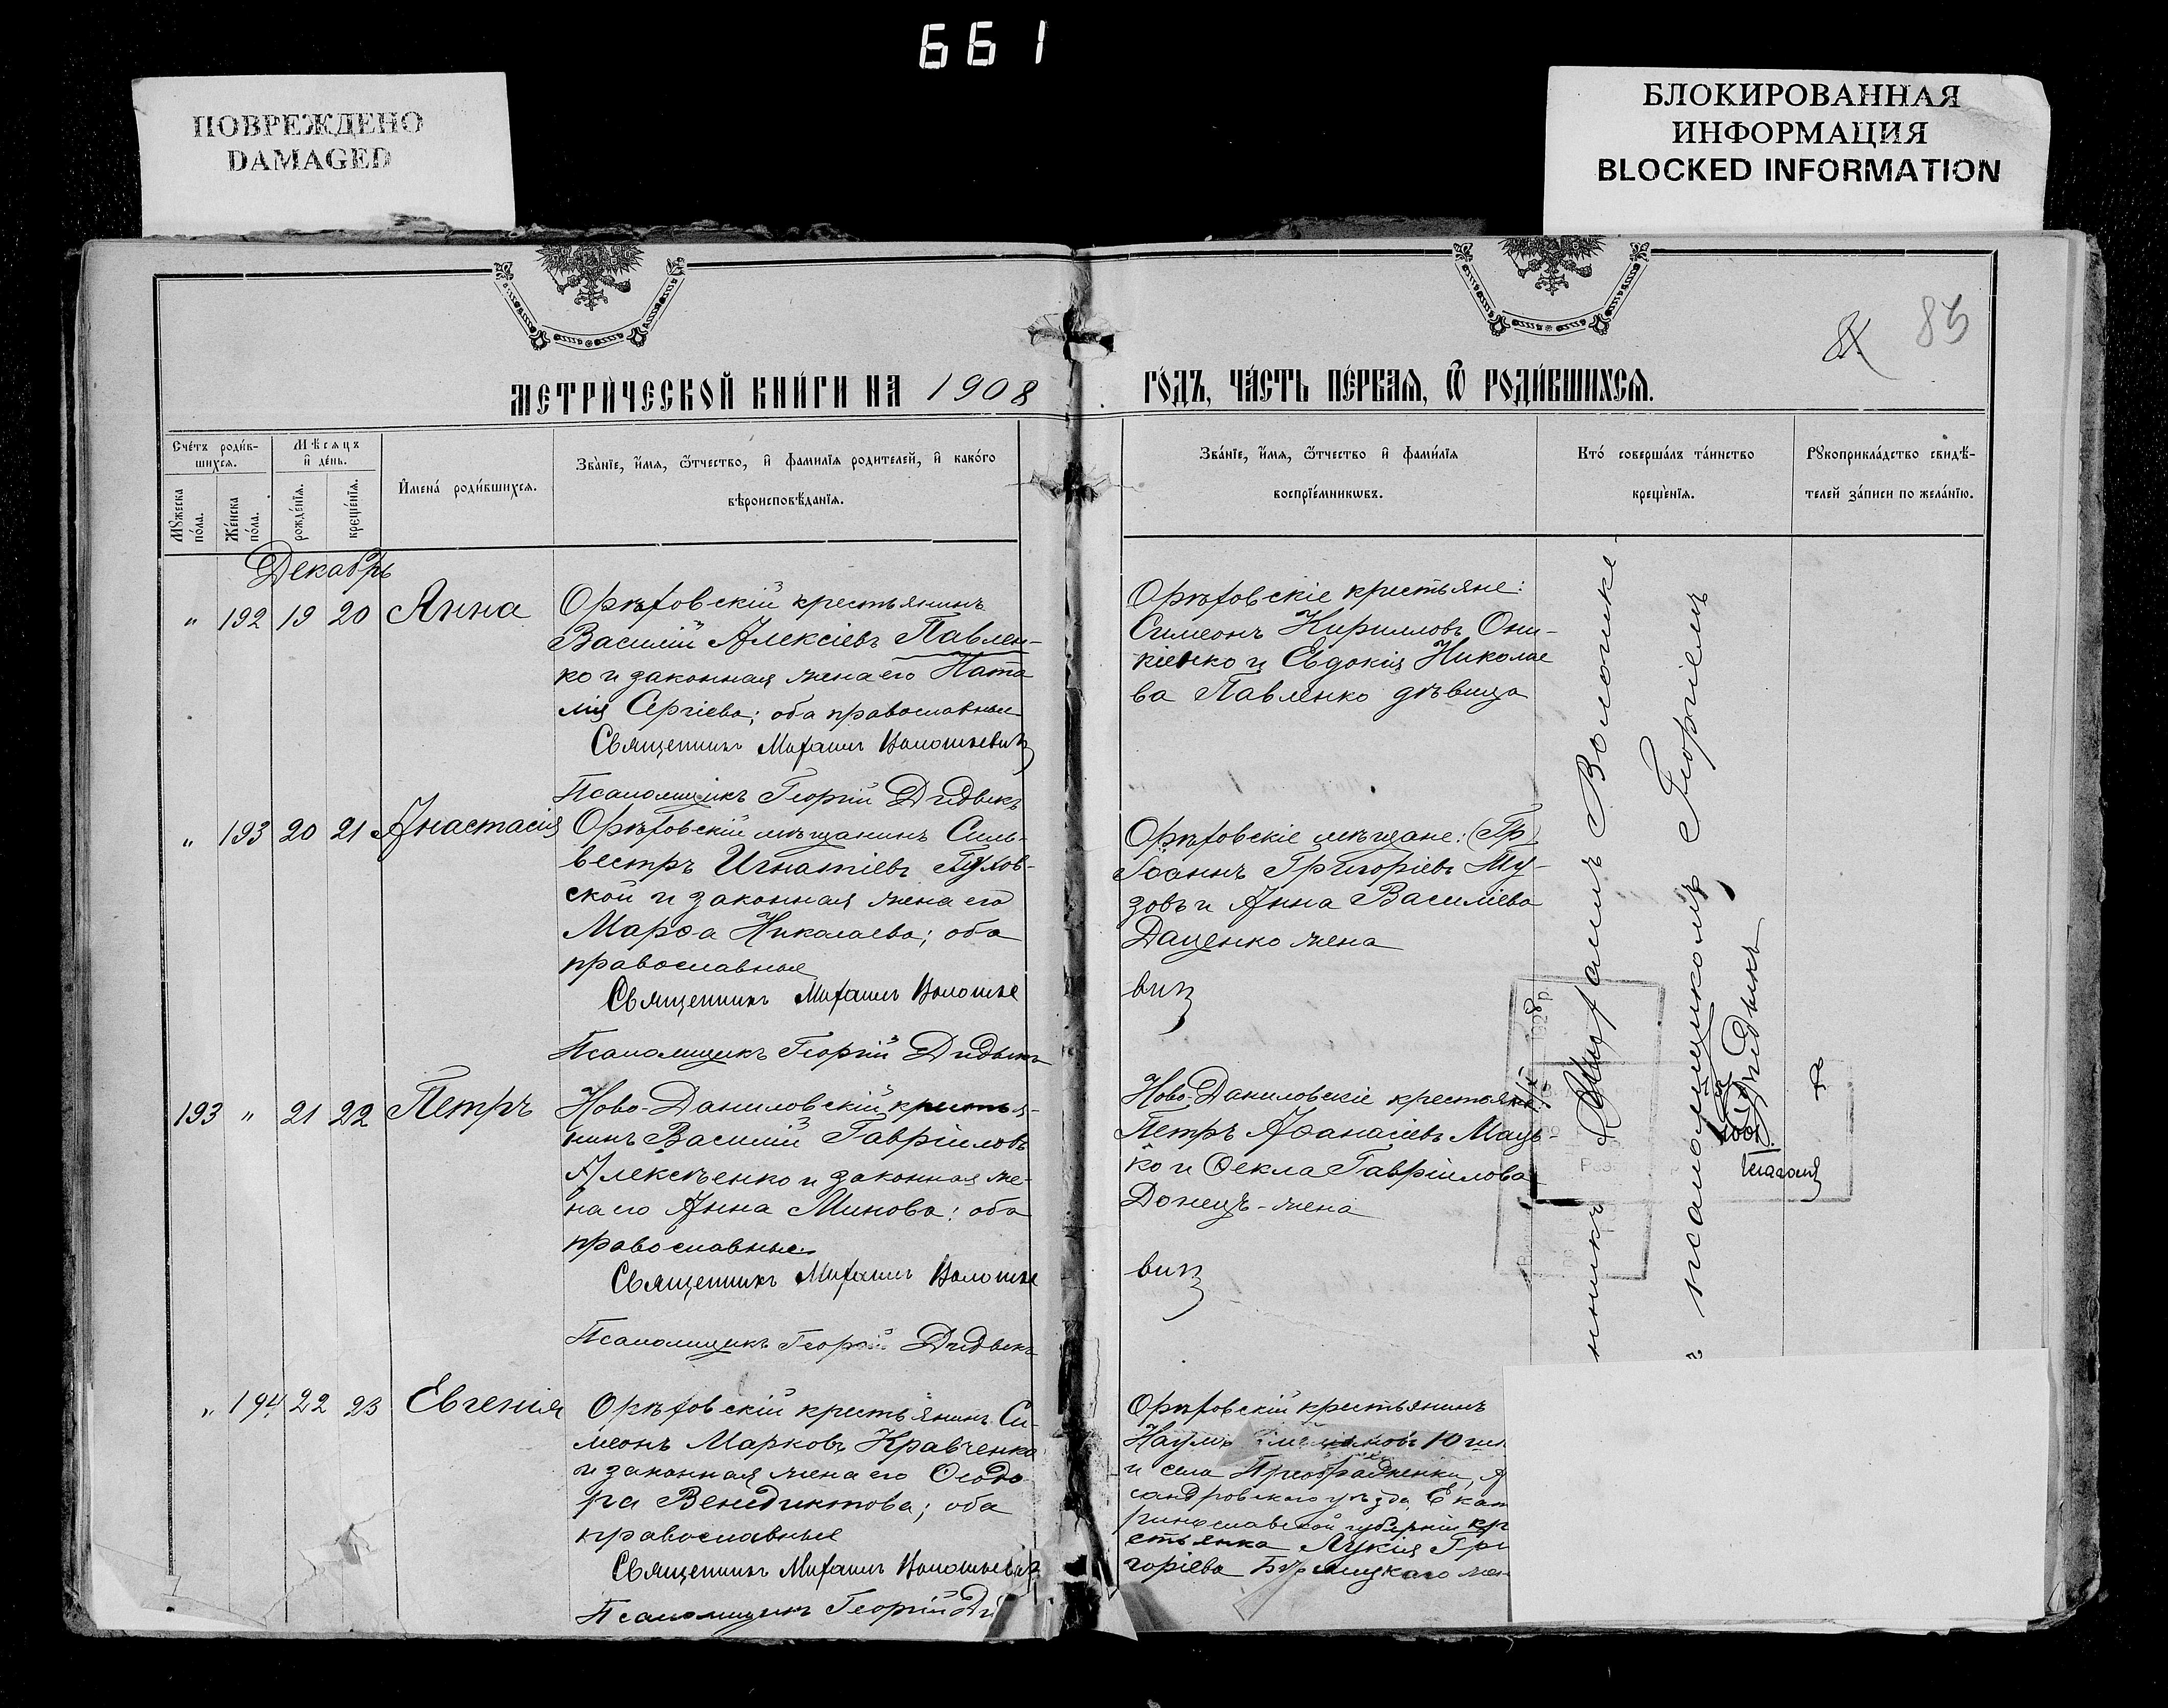 661
ПОВРЕЖДЕНО
DAMAGED
БЛОКИРОВАННАЯ
ИНФОРМАЦИЯ
BLOCKED INFORMATION
85
МЕТРИ́ЧЕСКОЙ КНИ́ГИ НА 1908
ГО́ДЪ, ЧА́СТЬ ПЕ́РВАѦ, Ѿ РОДИ́ВШИХСѦ.
Сче́тъ роди́в-
шихсѧ.
Мѣсѧцъ
и де́нь.
Мꙋжеска
по́ла.
Же́нска
по́ла.
рожде́нїѧ.
креще́нїѧ.
Имена́ роди́вшихсѧ.
Зва́нїе, и́мѧ, ѻ́тчество, и фамилїѧ родителей, и како́го
вѣроисповѣ́данїѧ.
Зва́нїе, и́мѧ, ѻ́тчество и фами́лїѧ
воспрїе́мникѡвъ.
Кто́ соверша́лъ та́инство
креще́нїѧ.
Рꙋкоприкла́дство свидѣ́-
телей за́писи по жела́нїю.
Декабрь
" 192 19 20 Анна
Орѣховскій крестьянинъ
Василій Алексіевъ Павлен-
ко и законная жена его Ната
лія Сергіева; оба православные
Священникъ Михаилъ Волошкевич
Псаломщикъ Георгій Дидыкъ
Орѣховскіе крестьяне:
Симеонъ Кирилловъ Они-
кіенко и Евдокія Николае
ва Павленко дѣвица
" 193 20 21 Анастасія
Орѣховскій мѣщанинъ Силь-
вестръ Игнатіевъ Пухов-
ской и законная жена его
Марѳа Николаева; оба
православные
Священникъ Михаилъ Волошке
Псаломщикъ Георгій Дидыкъ
Орѣховскіе мѣщане: (Гр)
Іоаннъ Григоріевъ Му-
зовъ и Анна Василіева
Даценко жена
вич
193 " 21 22 Петръ
Ново-Даниловскій крестья-
нинъ Василій Гавріиловъ
Алексѣенко и законная же-
на его Анна Минова; оба
православные
Священникъ Михаилъ Волошке
Псаломщикъ Георгій Дидыкъ
Ново-Даниловскіе крестьяне
Петръ Аѳанасіевъ Маць-
ко и Ѳекла Гавріилова
Донецъ - жена
вич
" 194 22 23 Евгенія
Орѣховскій крестьянинъ Си-
меонъ Марковъ Кравченко
и законная жена его Ѳеодо-
ра Венедиктова; оба
православные
Священникъ Михаилъ Волошкевич
Псаломщикъ Георгій Ди
Орѣховскій крестьянинъ
Наумъ
и села Преображенки,
сандровскаго уѣзда Екат
ринославской губерніи кре
стьянка Лукія Гри
горіева
нникъ Михаилъ Волошке-
псаломщикомъ Георгіемъ
Дидыкъ